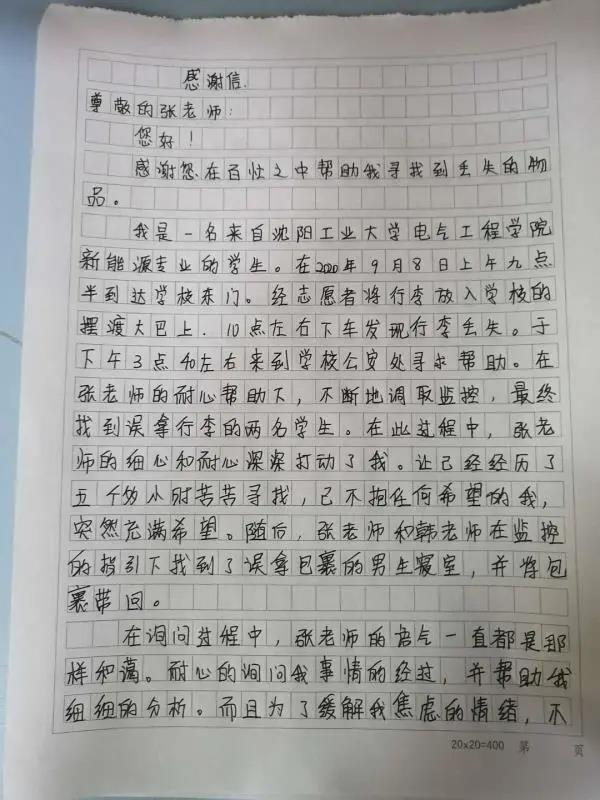 感谢信
尊敬的张老师:
您好!
感谢您在百忙之中帮助我寻找到丢失的物
品。
我是一名来自沈阳工业大学电气工程学院
新能源专业的学生。在2020年9月8日上午九点
半到达学校东门。经志愿者将行李放入学校的
摆渡大巴上.10点左右下车发现行李丢失。于
下午3点40左右来到学校公安处寻求帮助。在
张老师的耐心帮助下,不断地调取监控,最终
找到误拿行李的两名学生。在此过程中,张老
师的细心和耐心深深打动了我。让已经经历了
五个多小时苦苦寻找,已不抱任何希望的我,
突然充满希望。随后,张老师和韩老师在监控
的指引下找到了误拿包裹的男生寝室,并将包
裹带回。
在询问过程中,张老师的语气一直都是那
样和蔼。耐心的询问我事情的经过,并帮助我
细细的分析。而且为了缓解我焦虑的情绪,不
20×20=400 第 页